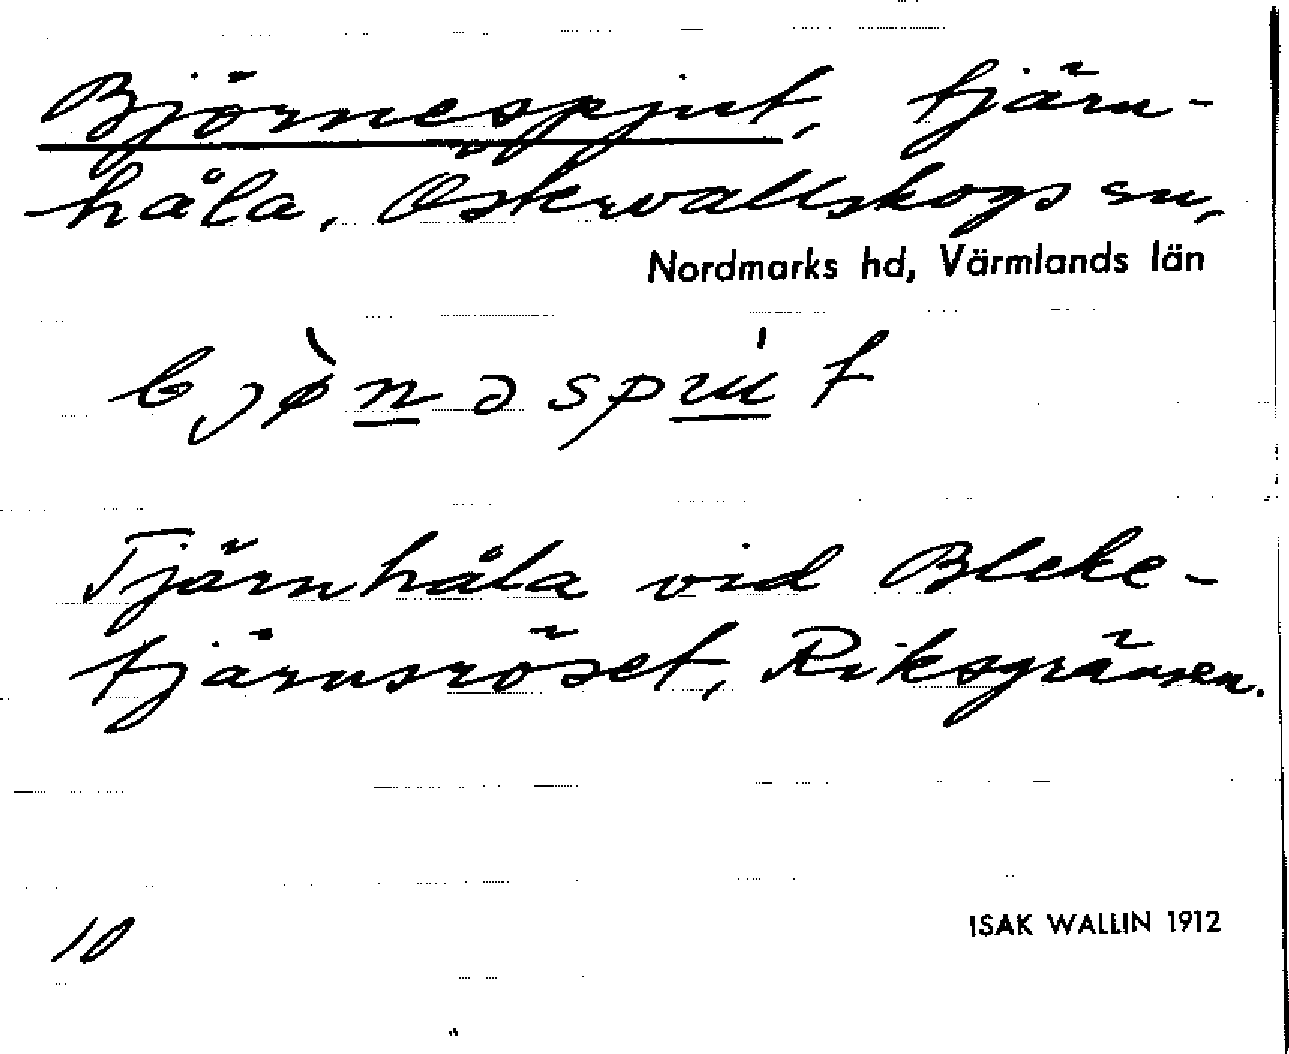 Björnespjut, tjärn-
håla, Östervallskogs sn,
Nordmarks hd, Värmlands län
bjø̀nəspúut
Tjärnhåla vid Bleke-
tjärnsröset, Riksgränsen.
10
ISAK WALLIN 1912